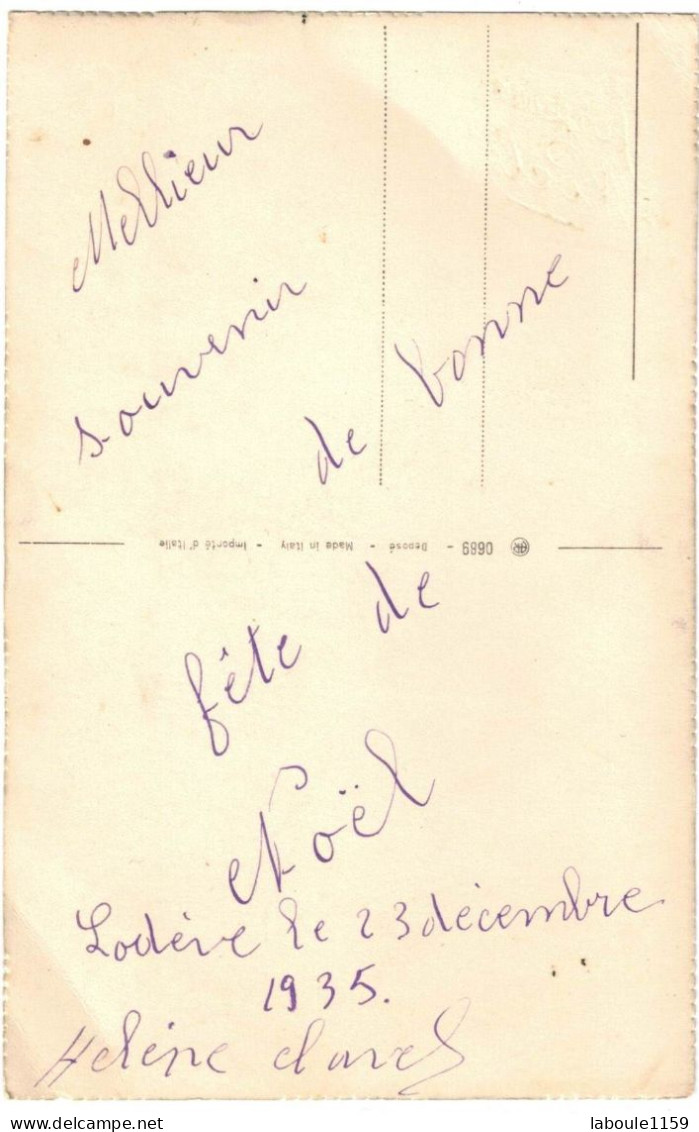 Mellieur
souvenir
de bonne
fête de
Noël
Lodève le 23 décembre
1935.
Hélène Clavel
0689 - Deposé - Made in Italy - Importé d'Italie
www.delcampe.net
laboule1159